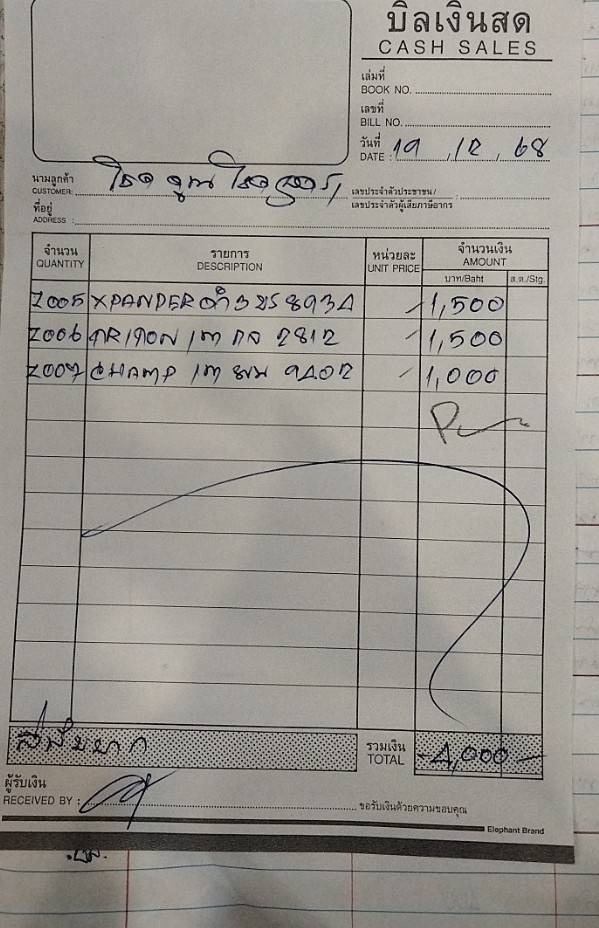 บิลเงินสด
CASH SALES
เล่มที่
BOOK NO.
เลขที่
BILL NO.
วันที่
DATE : 19 / 12 / 68
นามลูกค้า
CUSTOMER
เลขประจำตัวประชาชน/
เลขประจำตัวผู้เสียภาษีอากร
ที่อยู่
ADDRESS :
จำนวน รายการ หน่วยละ จำนวนเงิน
QUANTITY DESCRIPTION UNIT PRICE AMOUNT
บาท/Baht ส.ต./Stg.
7005 XPANDER ดำ 3ขร 8934 1,500
7006 TRITON เท กล 2812 1,500
7007 CHAMP เท 1,000
สี่พันบาท
รวมเงิน
TOTAL -4,000-
ผู้รับเงิน
RECEIVED BY :
ขอรับเงินด้วยความขอบคุณ
Elephant Brand